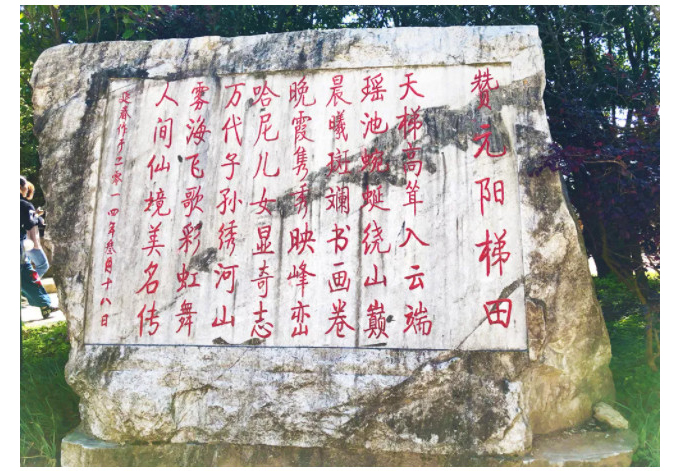 赞元阳梯田
天梯高耸入云端
瑶池蜿蜒绕山巅
晨曦斑斓书画卷
晚霞隽秀映峰峦
哈尼儿女显奇志
万代子孙绣河山
雾海飞歌彩虹舞
人间仙境美名传
延春作于二零一四年叁月十八日